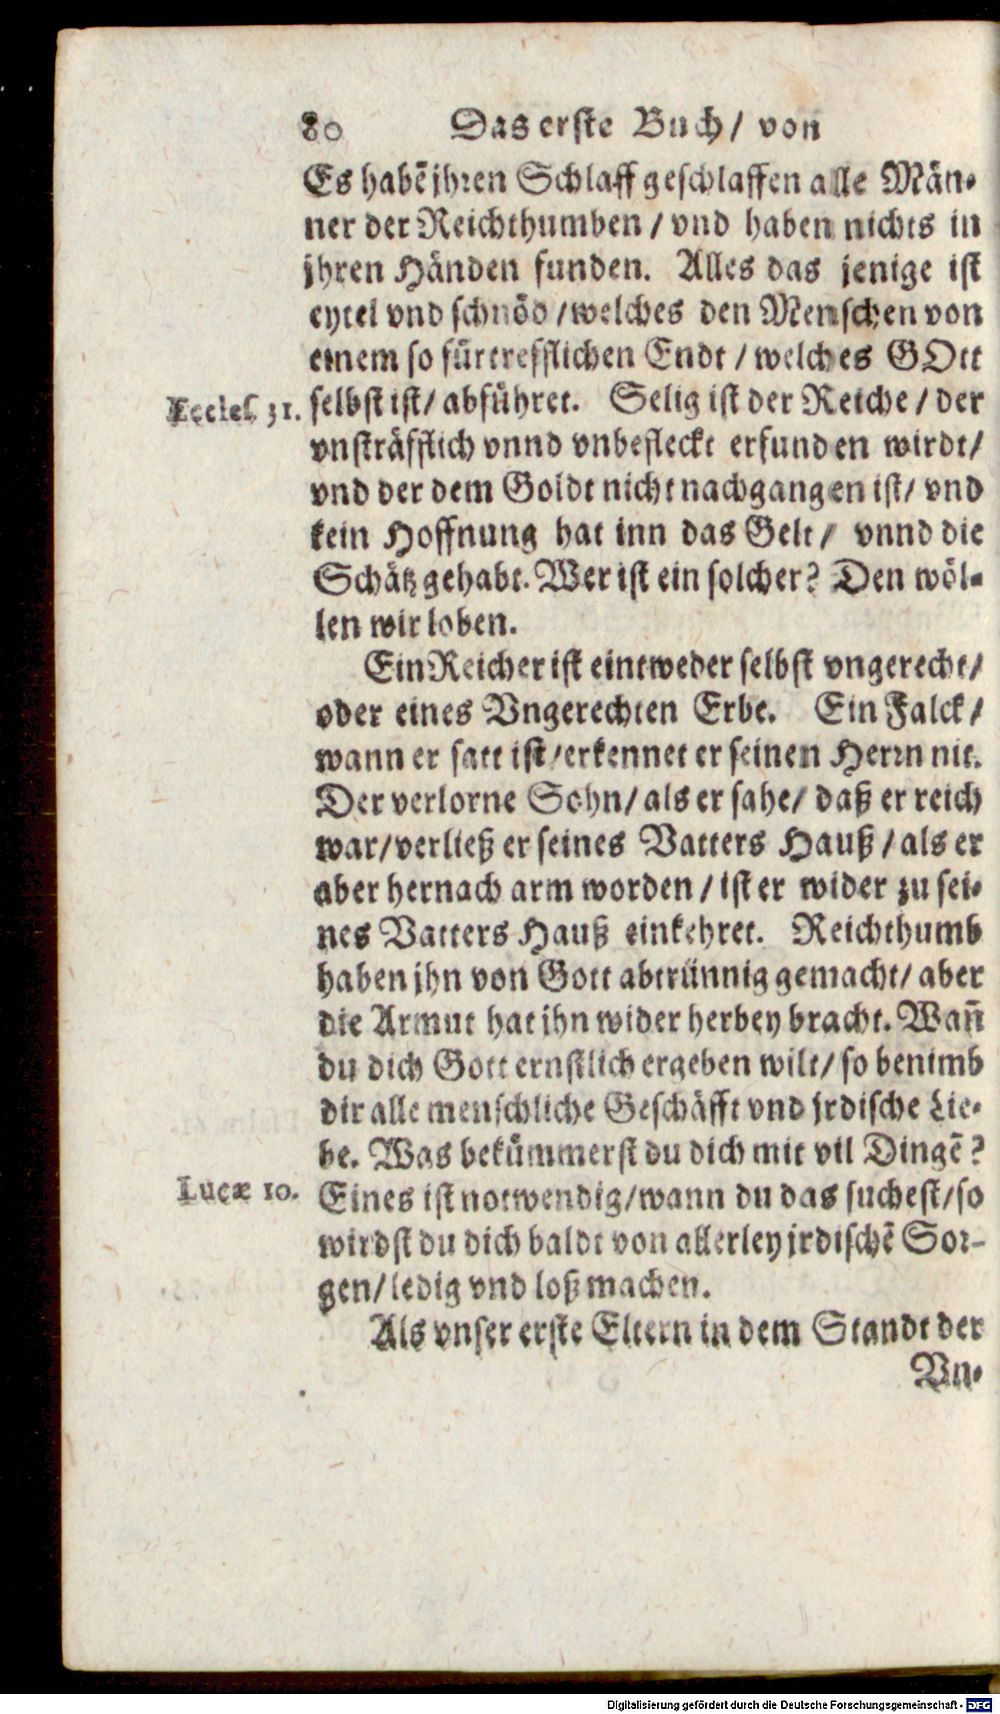 80 Das erste Buch / von
Es habẽ jhren Schlaff geschlaffen alle Män-
ner der Reichthumben / vnd haben nichts in
jhren Händen funden. Alles das jenige ist
eytel vnd schnöd / welches den Menschen von
einem so fürtrefflichen Endt / welches GOtt
Eccles 31. selbst ist / abführet. Selig ist der Reiche / der
vnsträfflich vnnd vnbefleckt erfunden wirdt /
vnd der dem Goldt nicht nachgangen ist / vnd
kein Hoffnung hat inn das Gelt / vnnd die
Schätz gehabt. Wer ist ein solcher? Den wöl-
len wir loben.
Ein Reicher ist eintweder selbst vngerecht /
oder eines Vngerechten Erbe. Ein Falck /
wann er satt ist / erkennet er seinen Herrn nit.
Der verlorne Sohn / als er sahe / daß er reich
war / verließ er seines Vatters Hauß / als er
aber hernach arm worden / ist er wider zu sei-
nes Vatters Hauß einkehret. Reichthumb
haben jhn von Gott abtrünnig gemacht / aber
die Armut hat jhn wider herbey bracht. Wañ
du dich Gott ernstlich ergeben wilt / so benimb
dir alle menschliche Geschäfft vnd jrdische Lie-
be. Was bekümmerst du dich mit vil Dingẽ?
Lucæ 10. Eines ist notwendig / wann du das suchest / so
wirdst du dich baldt von allerley jrdischẽ Sor-
gen / ledig vnd loß machen.
Als vnser erste Eltern in dem Standt der
Vn-
Digitalisierung gefördert durch die Deutsche Forschungsgemeinschaft - DFG